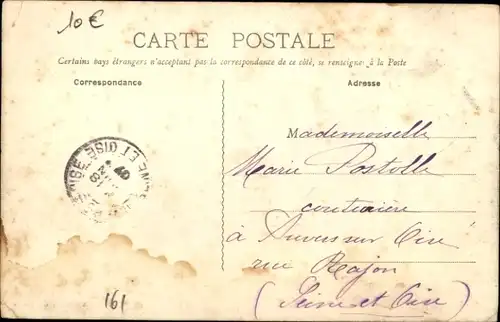 10€
CARTE POSTALE
Certains pays étrangers n'acceptant pas la correspondance de ce côté, se renseigner à la Poste
Correspondance
Adresse
Mademoiselle
Marie Postolle
couturière
à Auvers sur Oise
rue Rajon
(Seine et Oise)
ET OISE
161